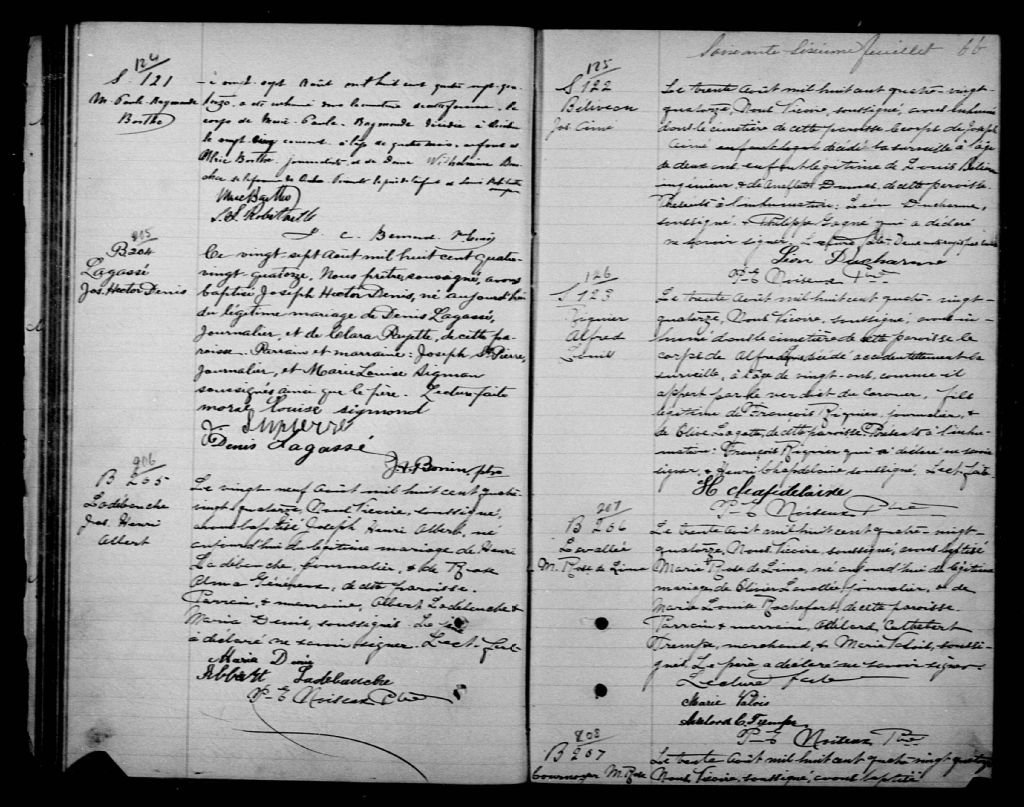 124
S. 121
M. Paule Raymonde
Barthe
vingt sept Août mil huit cent quatre vingt qua-
torze, a été inhumé dans le cimetière de cette paroisse, le
corps de Marie Paule Raymonde décédée à
le vingt cinq courant à l'âge de quatre mois, enfant de
Barthe, journaliste et de Dame Wilhelmine
J. C. Bernard
205
B 204
Lagassé
Jos. Hector Denis
Ce vingt sept Août mil huit cent quatre
vingt-quatorze, Nous prêtre, soussigné, avons
baptisé Joseph Hector Denis, né aujourd'hui
du légitime mariage de Denis Lagassé,
journalier, et de Clara de cette pa-
roisse. Parrain et marraine: Joseph St Pierre,
journalier, et Marie Louise Sigman
soussignés ainsi que le père. Lecture faite
louise sigmond
Denis Lagassé
J. A. Bonin, ptre
206
B 205
Ladébauche
Jos. Henri
Albert
Le vingt-neuf Août mil huit cent quatre-
vingt-quatorze, Nous Vicaire, soussigné,
avons baptisé Joseph Henri Albert, né
aujourd'hui du légitime mariage de Henri
Ladebauche, journalier, & de Rose
Alma Généreux, de cette paroisse.
Parrain, & marraine, Albert Ladebauche &
Maria Denis, soussignés. Le père
a déclaré ne savoir signer. Lect. faite
Maria Denis
Albert Ladebauche
P-E Noiseux Ptre
Soixante sixième feuillet 66
125
S 122
Béliveau
Jos. Aimé
Le trente Août mil huit cent quatre-vingt-
quatorze, Nous Vicaire, soussigné, avons inhumé
dans le cimetière de cette paroisse le corps de Joseph
Aimé enfant légitime décédé la surveille à l'âge
de deux ans enfant légitime de Louis Béliveau
ingénieur & de de cette paroisse.
Présents à l'inhumation: Léon Ducharme,
soussigné. & Philippe Gagné qui a déclaré
ne savoir signer. Lecture faite.
Léon Ducharme
P-E Noiseux Ptre
126
S 123
Riquier
Alfred
Louis
Le trente Août mil huit cent quatre-vingt-
quatorze, Nous Vicaire, soussigné, avons in-
humé dans le cimetière de cette paroisse le
corps de Alfred Louis décédé accidentellement la
surveille, à l'âge de vingt-ans, comme il
appert par le verdict du Coroner, fils
légitime de François Riquier, journalier, &
de Olive de cette paroisse. Présents à l'inhu-
mation: François Riquier qui a déclaré ne savoir
signer, & Henri Chapdelaine soussigné. Lect. faite
H Chapdelaine
P-E Noiseux Ptre
207
B 206
Lavallée
M. Rose de Lima
Le trente Août mil huit cent quatre-vingt-
quatorze, Nous Vicaire, soussigné, avons baptisé
Marie Rose de Lima, née aujourd'hui du légitime
mariage de Olivier Lavallée journalier, & de
Marie Louise Rochefort, de cette paroisse.
Parrain, & marraine, Adélard Cuthbert
Trempe, marchand, & Marie Valois, soussi-
gnés. Le père a déclaré ne savoir signer.
Lecture faite
Marie Valois
Adelard C. Trempe
P-E Noiseux Ptre
208
B 207
Cournoyer M. Rose
Le trente Août mil huit cent quatre-vingt quatorze
Nous Vicaire, soussigné, avons baptisé